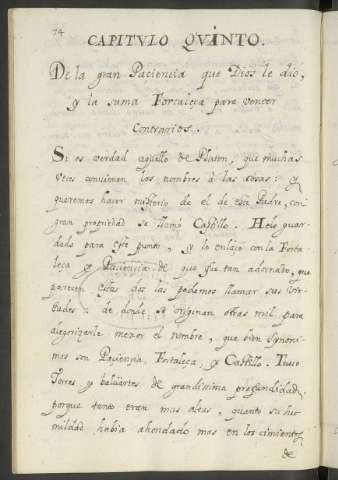 74
CAPITVLO QVINTO.
De la gran Paciencia que Dios le dio,
y la suma Fortaleça para vencer
Contrarios.
Si es verdad aquello de Platon, que muchas
veces convienen los nombres à las cosas: y
queremos hacer mysterio de el de este Padre, con
gran propriedad se llamó Castillo. Helo guar-
dado para este punto, y lo enlaço con la Forta-
leça y Paciencia de que fue tan adornado, que
parecen estas dos las podemos llamar sus vir-
tudes: de donde se originan otras mil para
alegorizarle mejor el nombre, que bien synoni-
mos son Paciencia, Fortaleça, y Castillo. Tuvo
Torres y baluartes de grandissima profundidad,
porque tanto eran mas altas, quanto su hu-
mildad habia ahondado mas en los cimientos
de